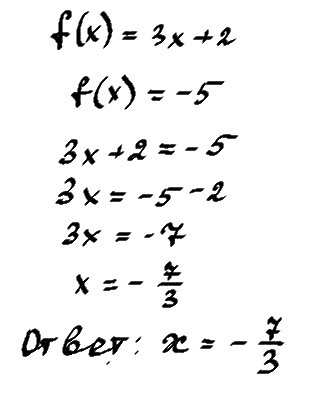 f(x) = 3x + 2
f(x) = -5
3x + 2 = -5
3x = -5 - 2
3x = -7
x = - 7/3
Ответ: x = - 7/3